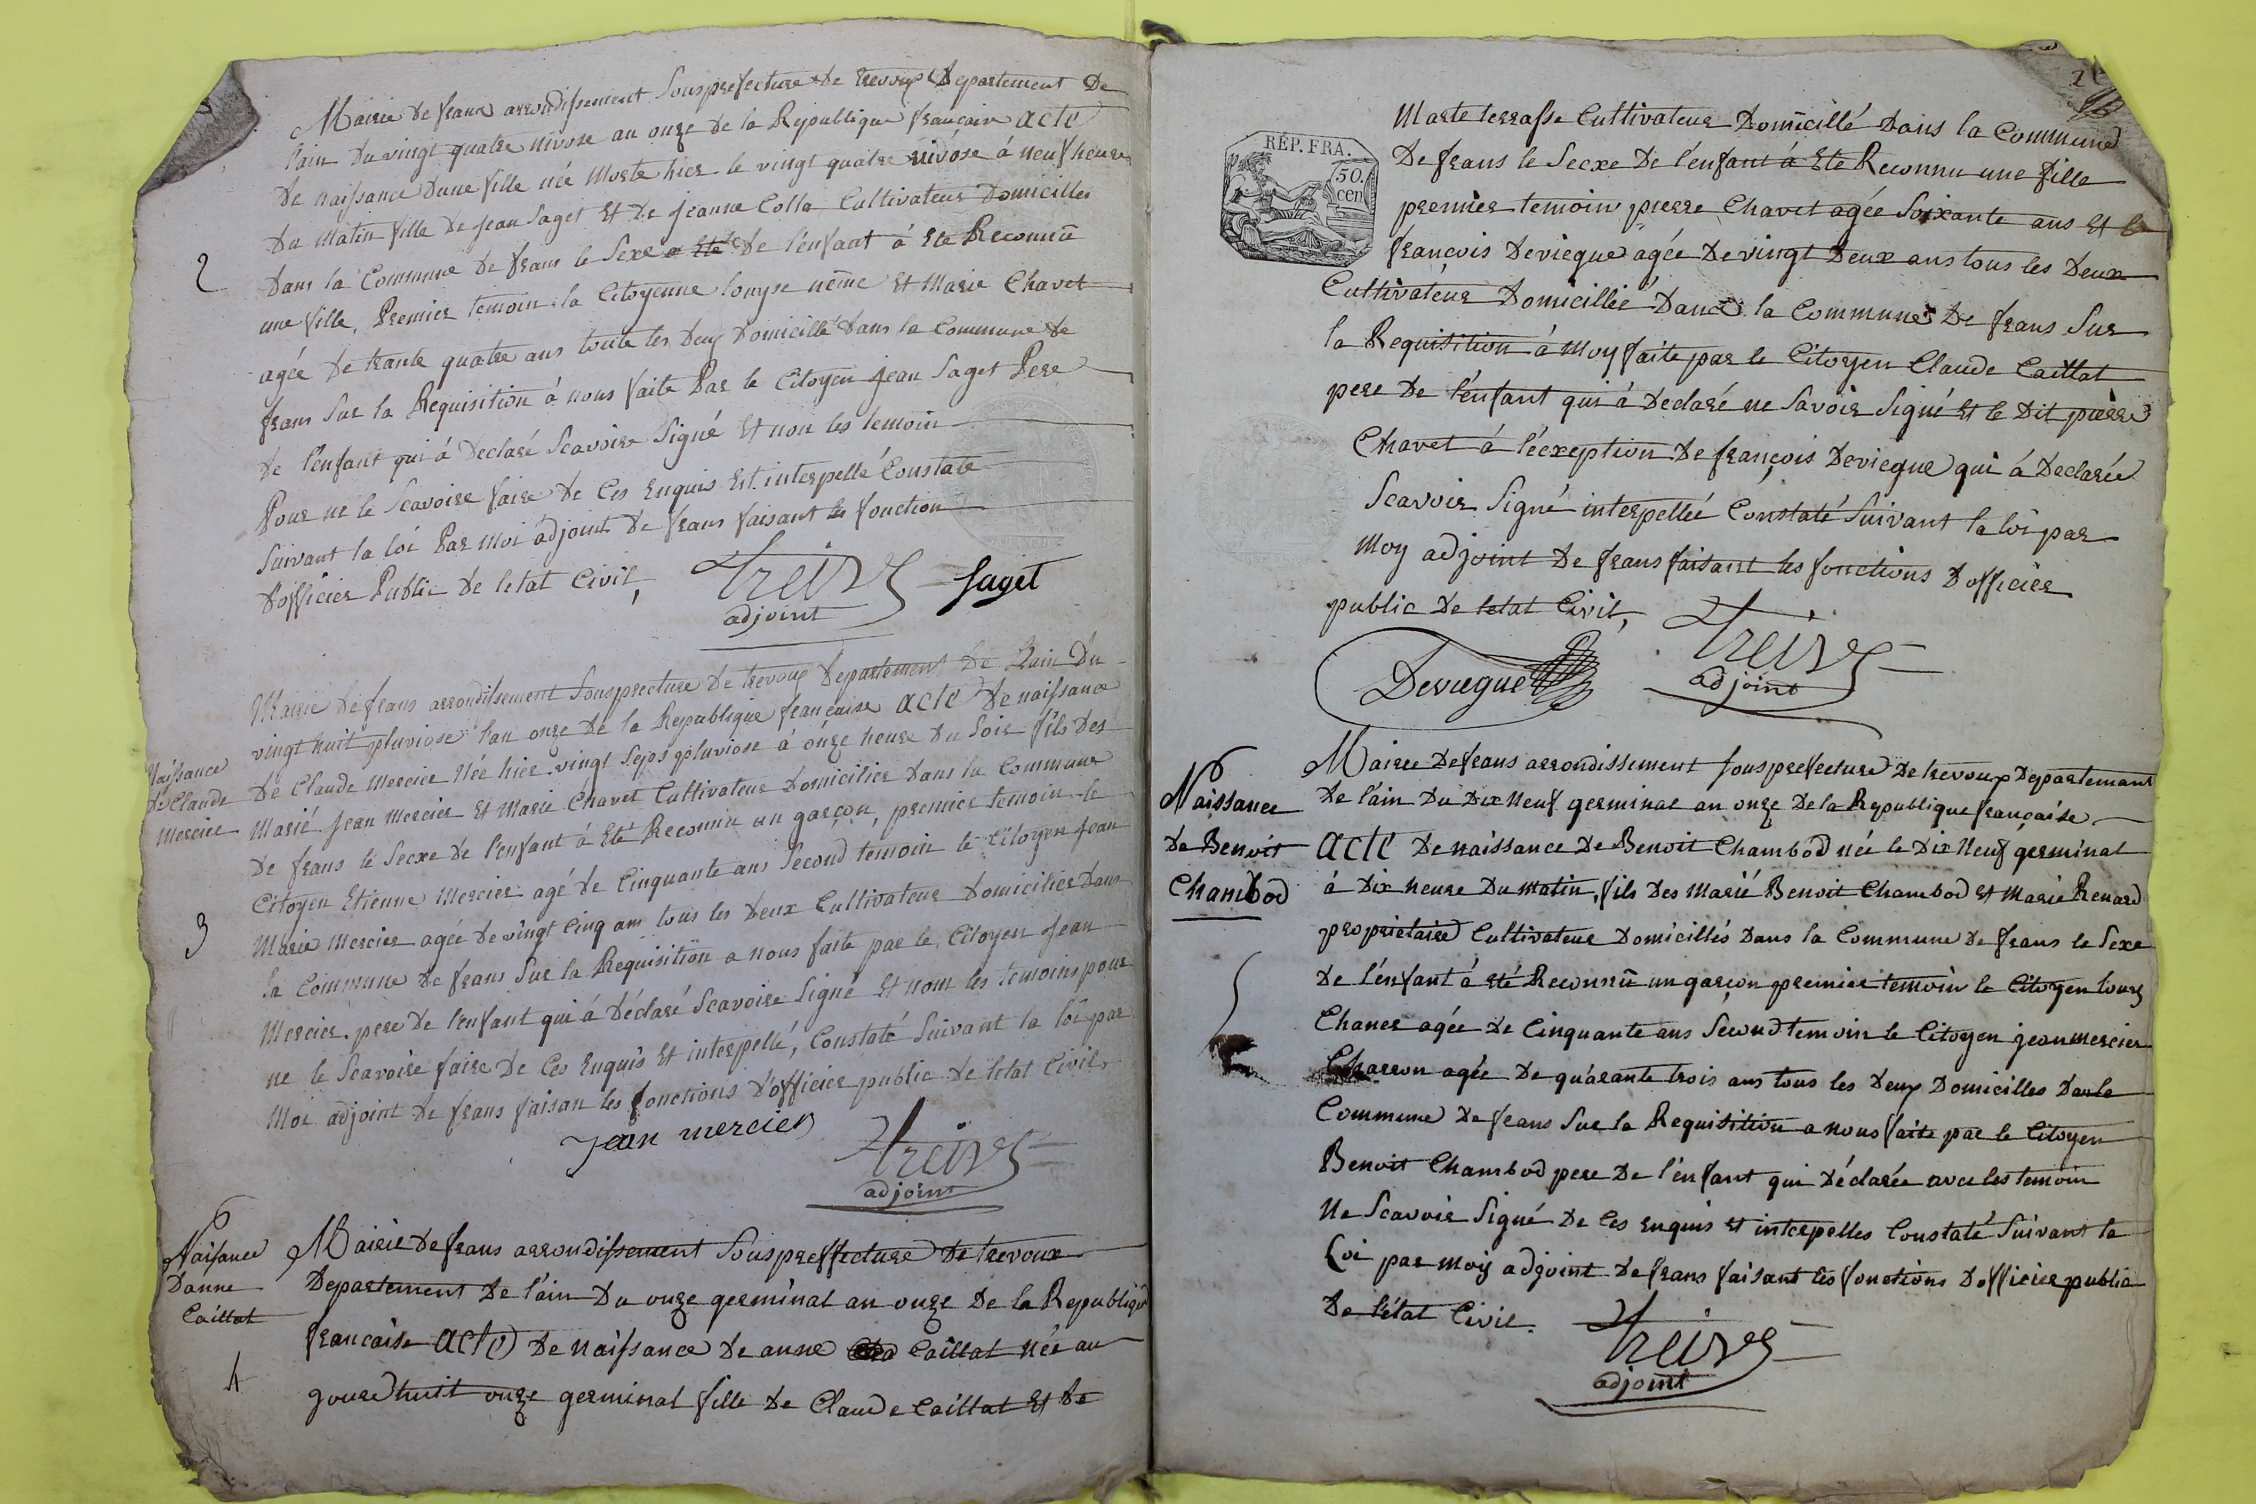 Mairie de frans arrondissement Sousprefecture de trevoux Departement De
lain Du vingt quatre nivose an onze de la Republique francaise acte
de naissance Dune fille née Morte hier le vingt quatre nivose á neuf heure
Du Matin fille De jean Saget Et De jeanne Colla Cultivateur Domicilles
2
Dans la Commune De frans le Sexe De l'enfant á Eté Reconnü
une fille, Premier temoin la Citoyenne même Et Marie Chavet
agée De trante quatre ans toute les Deux Domicillé Dans la Commune de
frans Sur la Requisition á nous faite Par le Citoyen jean Saget Pere
de l'enfant qui á Declaré Scavoire Signé Et non les temoin
Pour ne le Scavoire faire de Ces Enquis Et interpellé Constaté
Suivant la loi Par moi adjoint De frans faisant les fonction
D'officier Public De letat Civil,
Saget
adjoint
Mairie de frans arrondissement Sousprecture De trevoux Departement De Lain Du
vingt huit pluviose lan onze De la Republique francaise acte De naissance
Naissance
De Claude
Mercier
De Claude Mercier Née hier vingt Sept pluviose á onze heure Du Soir fils Des
Marié Jean Mercier Et Marie Chavet Cultivateur Domicilier Dans la Commune
De frans le Secxe De l'enfant á Eté Reconnu un garçon, premier temoin le
Citoyen Etienne Mercier agé De Cinquante ans Second temoin le Citoyen Jean
3
Marie Mercier agée De vingt Cinq ans tous les Deux Cultivateur Domicilier Dans
la Commune De frans Sur la Requisition a nous faite par le Citoyen Jean
Mercier pere De l'enfant qui á Déclaré Scavoire Signé Et nom les temoins pour
ne le Scavoire faire De Ces Enquis Et interpellé, Constaté Suivant la loi par
Moi adjoint De frans faisan les fonctions D'officier public De letat Civil
Jean mercier
adjoint
Naissance
Danne
Caillat
4
Mairie De frans arrondissement Souspreffecture De trevoux
Departement De l'ain Du onze germinal an onze De la Republique
francaise acte De naissance De anne Caillat Née au
jourdhuit onze germinal fille De Claude Caillat Et De
2
RÉP. FRA.
50.
cen
Marte terrasse Cultivateur Domicillé Dans la Commune
De frans le Secxe De l'enfant á Eté Reconnu une fille
premier temoin pierre Chavet agée Soixante ans Et le
françois Devieque agée De vingt Deux ans tous les Deux
Cultivateur Domicillié Dance la Commune De frans Sur
la Requisition á Moy faite par le Citoyen Claude Caillat
pere De l'enfant qui á Declaré ne Savoir Signé Et le Dit pierre
Chavet á l'écxeption De françois Devieque qui á Declarée
Scavoir Signé interpellée Constaté Suivant la loi par
Moy adjoint De frans faisant les fonctions D'officier
public De letat Civil,
Devieque
adjoint
Naissance
De Benoit
Chambod
Mairie De frans arrondissement Sousprefecture De trevoux Departemant
De l'ain Du Dix Neuf germinal an onze De la Republique française
acte De naissance De Benoit Chambod née le Dix Neuf germinal
á Dix heure Du matin, fils Des Marié Benoit Chambod Et Marie Renard
proprietaire Cultivateur Domicillés Dans la Commune De frans le Sexe
De l'enfant á Eté Reconnü un garçon premier temoin le Citoyen louis
5
Chanet agée De Cinquante ans Second temoin le Citoyen jean mercier
Charron agée De quarante trois ans tous les Deux Domicilles Dan la
Commune De frans Sur la Requisition a nous faite par le Citoyen
Benoit Chambod pere De l'enfant qui Déclarée avec les temoin
Ne Scavoir Signé De Ces Enquis Et interpelles Constaté Suivant la
Loi par moy adjoint De frans faisant les fonctions D'officier public
De l'état Civil.
adjoint